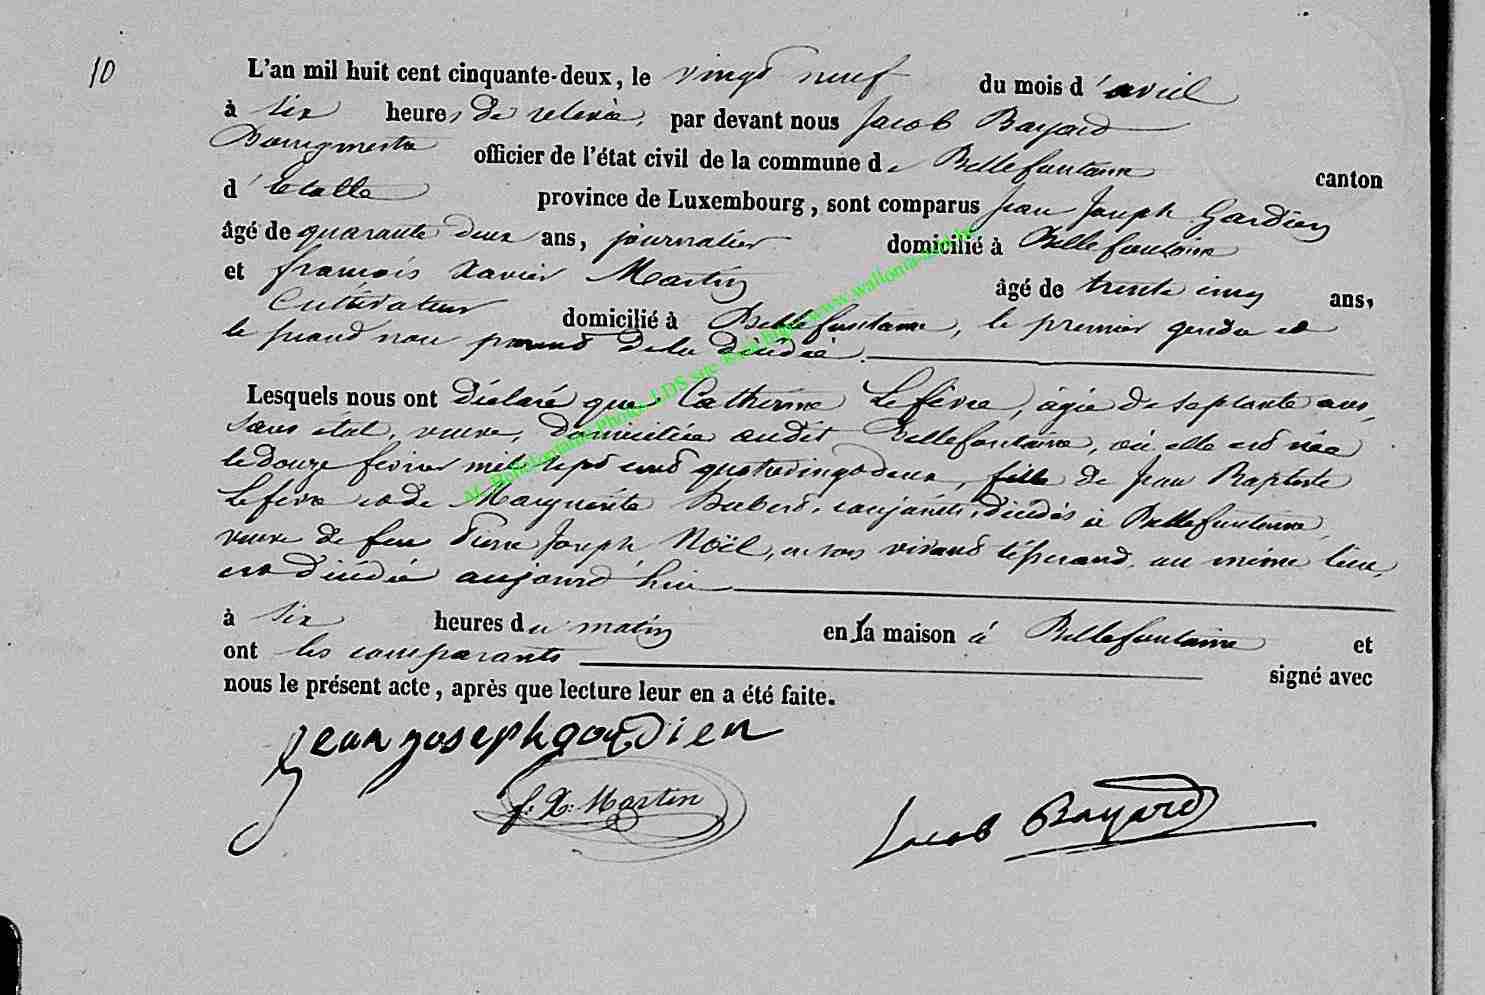 10
L'an mil huit cent cinquante-deux, le vingt neuf du mois d'avril
à six heures de relevée, par devant nous Jacob Bayard
Bourgmestre officier de l'état civil de la commune de Bellefontaine canton
d'Etalle province de Luxembourg, sont comparus Jean Joseph Gardien
âgé de quarante deux ans, journalier domicilié à Bellefontaine
et françois Xavier Martin âgé de trente cinq ans,
Cultivateur domicilié à Bellefontaine, le premier gendre et
le second non parent de la décédée.
Lesquels nous ont déclaré que Catherine Lefèvre, âgée de septante ans,
sans état, veuve, domiciliée audit Bellefontaine, où elle est née
le douze février mil sept cent quatrevingt deux, fille de Jean Baptiste
Lefèvre et de Marguerite conjoints, décédés à Bellefontaine,
veuve de feu Pierre Joseph Noël, en son vivant au même lieu,
est décédée aujourd'hui
à six heures du matin en sa maison à Bellefontaine et
ont les comparants signé avec
nous le présent acte, après que lecture leur en a été faite.
jean joseph gardien
f. X. Martin
Jacob Bayard